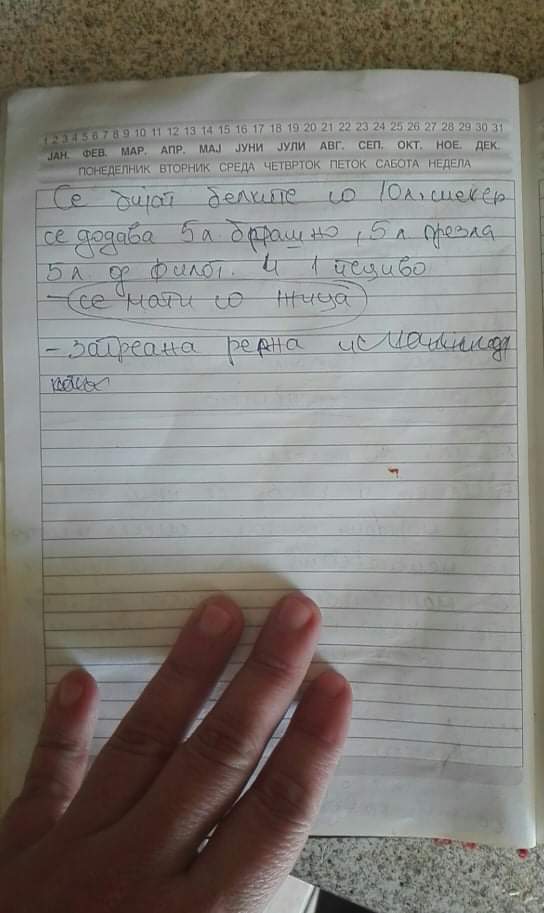 1 2 3 4 5 6 7 8 9 10 11 12 13 14 15 16 17 18 19 20 21 22 23 24 25 26 27 28 29 30 31
ЈАН. ФЕВ. МАР. АПР. МАЈ ЈУНИ ЈУЛИ АВГ. СЕП. ОКТ. НОЕ. ДЕК.
ПОНЕДЕЛНИК ВТОРНИК СРЕДА ЧЕТВРТОК ПЕТОК САБОТА НЕДЕЛА
Се бијат белките со 10л. шеќер
се додава 5л. брашно, 5л презла
5л. и 1 пециво
- се мати со жица
- загреана рерна